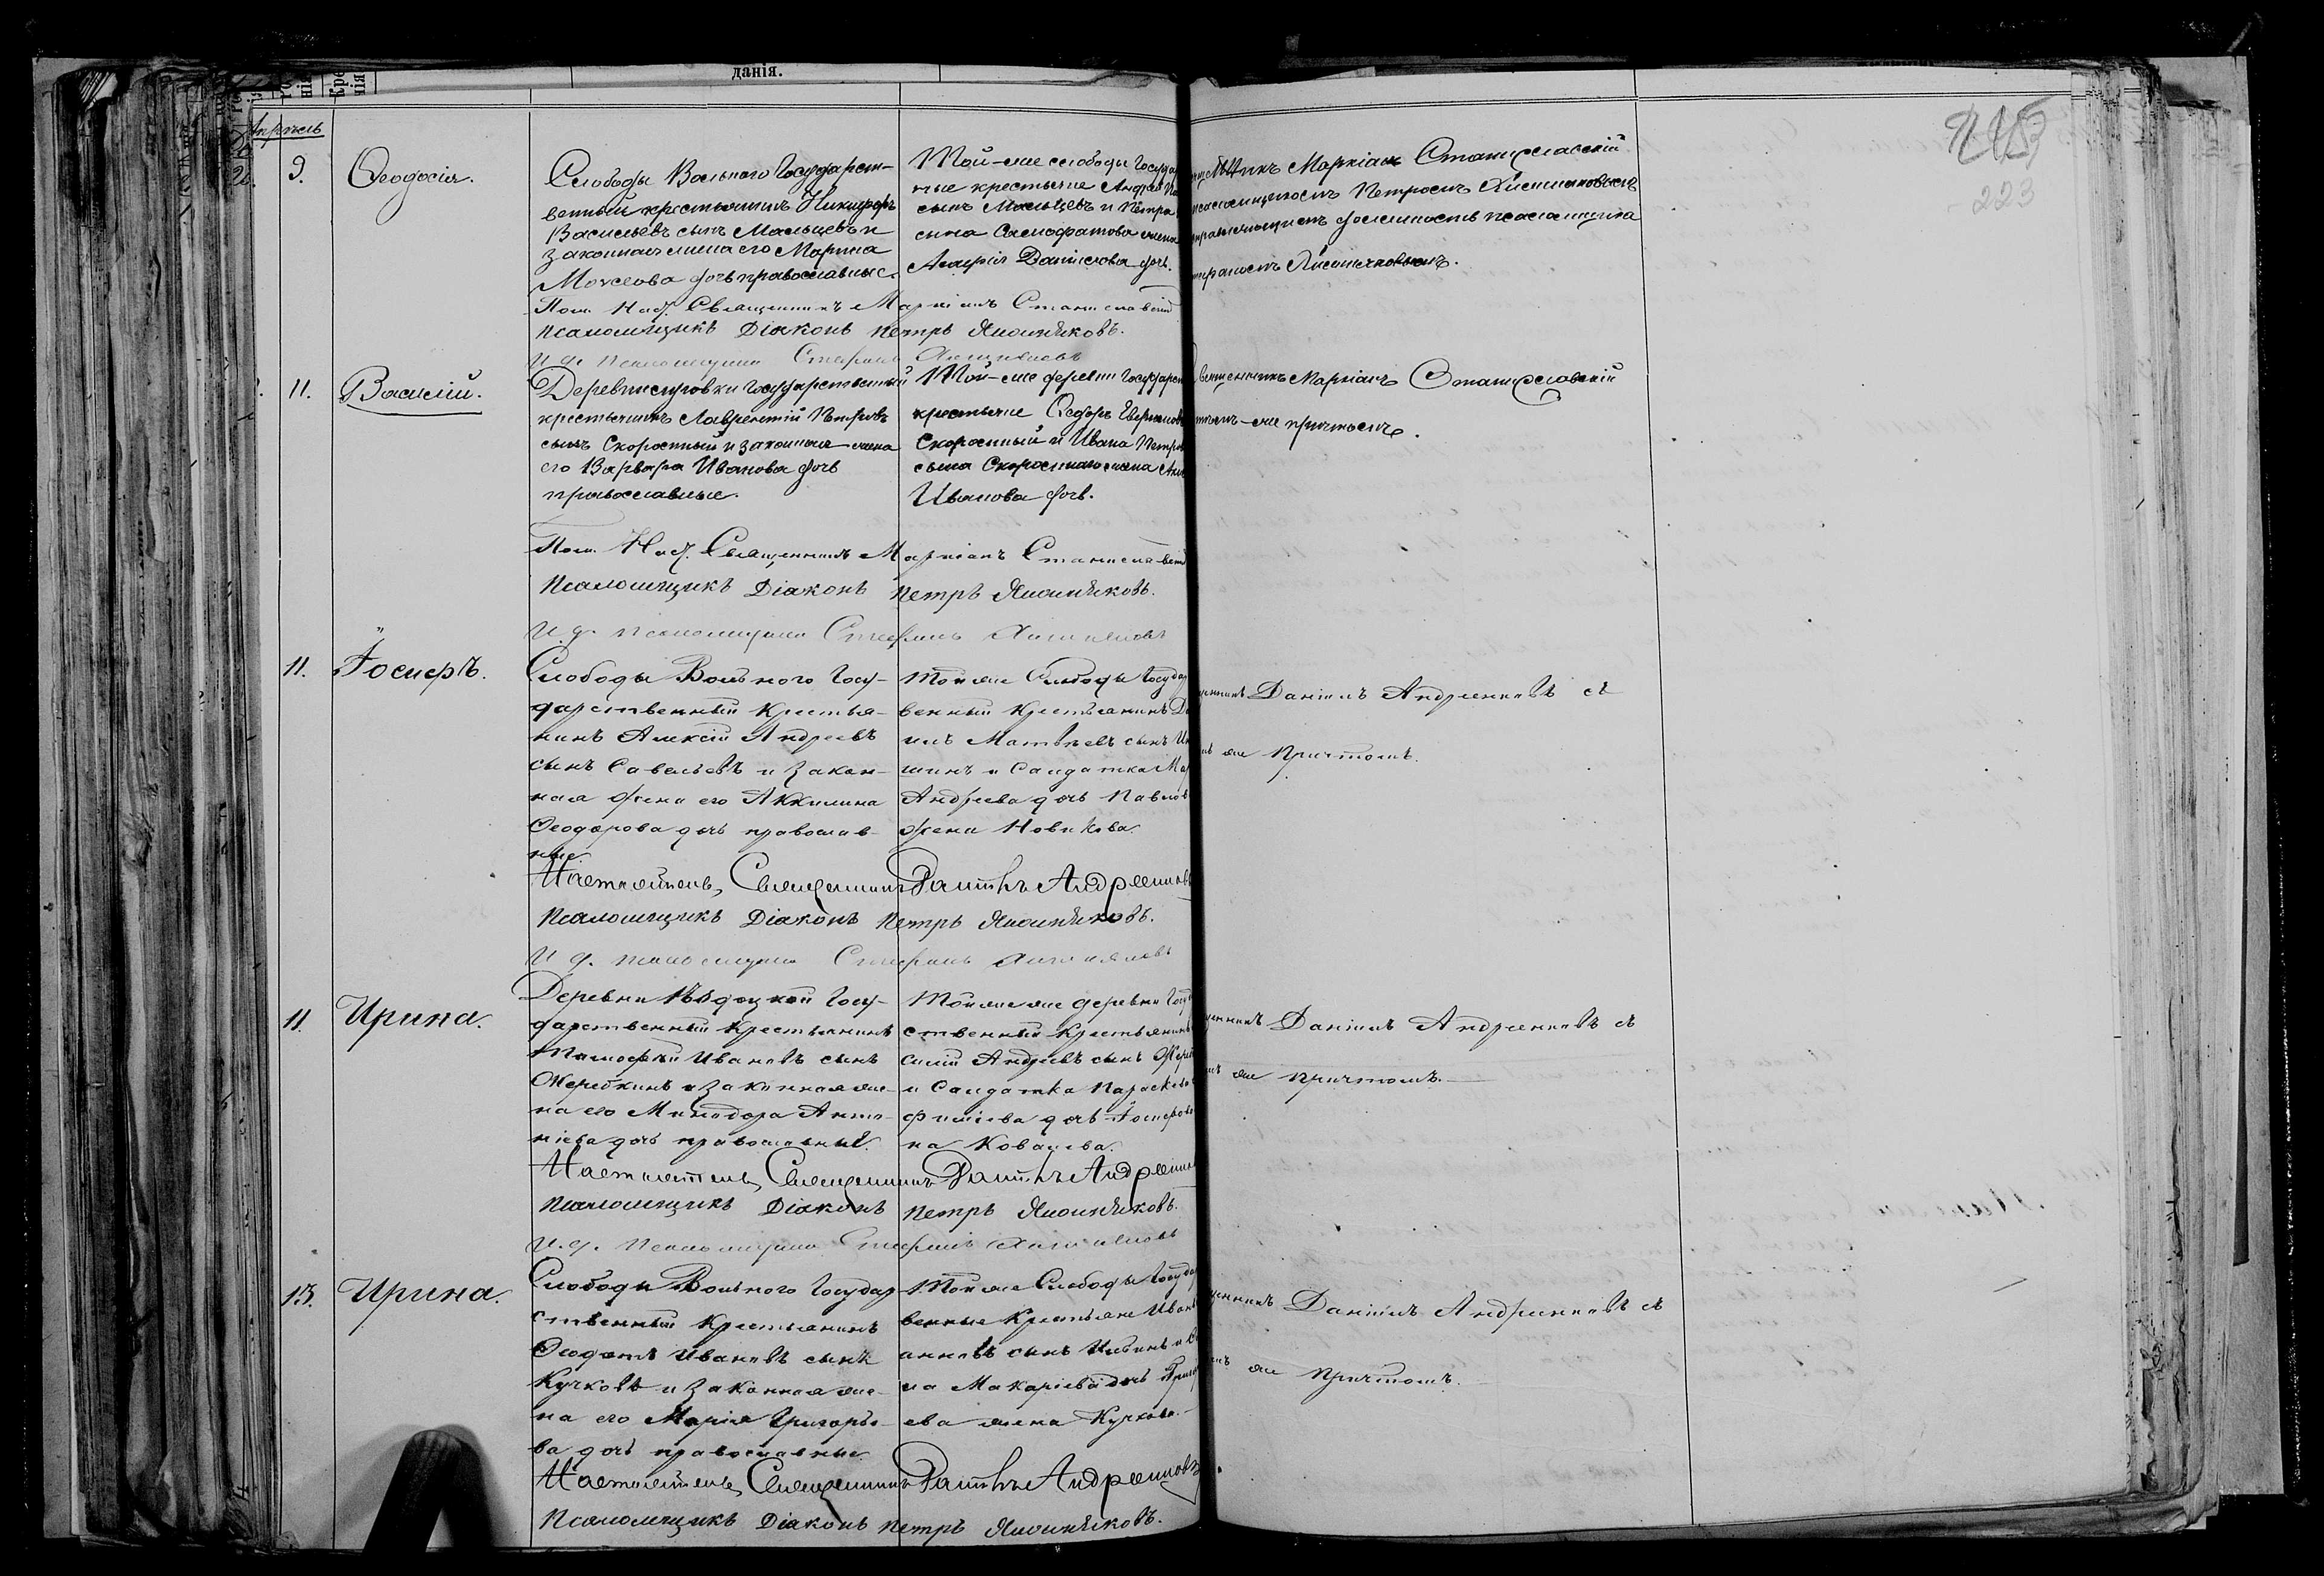 данія.
Апрѣль
9.
Ѳеодосія.
Слободы Вольнаго Государст-
венный крестьянинъ Никифоръ
Васильевъ сынъ Мальцевъ и
законная жена его Марина
Моисеева дочь православные.
Той-же слободы Государ
ные крестьяне Андрей
сынъ Мальцевъ и Петра
сына жена
Даниилова дочь.
Маркіанъ Станиславскій
псаломщикомъ Петромъ
должность псаломщика
223
Пом. Наст. Священникъ Маркіанъ Станиславскій
Псаломщикъ Діаконъ Петръ
И. д. псаломщика Стефанъ
11.
Василій.
Деревни Государственный
крестьянинъ Лаврентій Петровъ
сынъ Скоростный и законная жена
его Варвара Иванова дочь
православные.
Той-же деревни Государст
крестьяне Ѳедоръ
Скоростный и Ивана Петро
сына Скоростнаго жена
Иванова дочь.
Священникъ Маркіанъ Станиславскій
тѣмъ-же причтомъ.
Пом. Наст. Священникъ Маркіанъ Станиславскій
Псаломщикъ Діаконъ Петръ
И. д. псаломщика Стефанъ
11.
Іосифъ.
Слободы Вольного Госу-
дарственный Крестья-
нинъ Алексій Андреевъ
сынъ Савельевъ и закон-
ная жена его Акилина
Ѳеодорова дочь православ-
ные.
Той же Слободы Государ
венный Крестьянинъ
илъ Матвѣевъ сынъ
шинъ и Солдатка Мар
Андреева дочь Павлов
жена Новикова.
Даніилъ Андреенковъ съ
же Причтомъ.
Настоятель, Священникъ Даніилъ Андреенковъ
Псаломщикъ Діаконъ Петръ
И. д. псаломщика Стефанъ
11.
Ирина.
Деревни Госу-
дарственный Крестьянинъ
Тимофей Ивановъ сынъ
Жеребкинъ и законная же-
на его Минодора Анто-
ніева дочь православные.
Той же деревни Госуд
ственный Крестьянинъ
силій Андреевъ сынъ Жереб
и Солдатка Параскева
фимiева дочь Іосифова
на Ковалева.
Даніилъ Андреенковъ съ
же причтомъ.
Настоятель, Священникъ Даніилъ Андреенков
Псаломщикъ Діаконъ Петръ
И. д. псаломщика Стефанъ
13.
Ирина.
Слободы Вольного Государ
ственный Крестьянинъ
Ѳеодотъ Ивановъ сынъ
Кучковъ и законная же-
на его Марія Григорье-
ва дочь православные.
Той же Слободы Государ
венные Крестьяне Иванъ
анновъ сынъ
на Макаріева дочь Григор
ева жена Кучкова.
Даніилъ Андреенковъ съ
же Причтомъ.
Настоятель, Священникъ Даніилъ Андреенковъ
Псаломщикъ Діаконъ Петръ